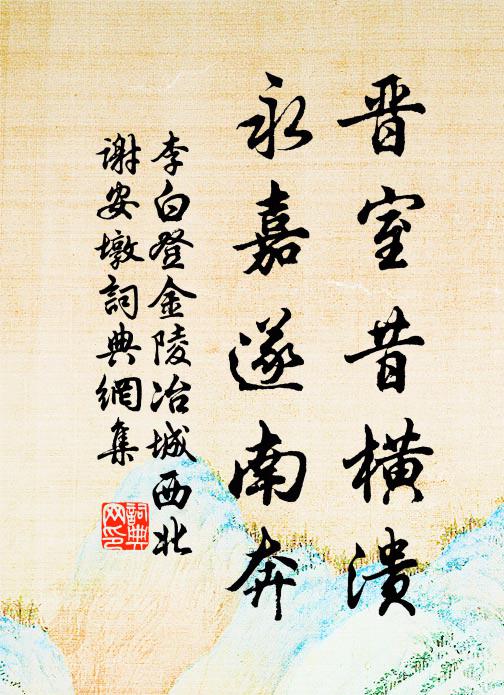 晋室昔横潰
永嘉遂南奔
李白登金陵冶城西北
谢安墩詞典網集
詞典
网印